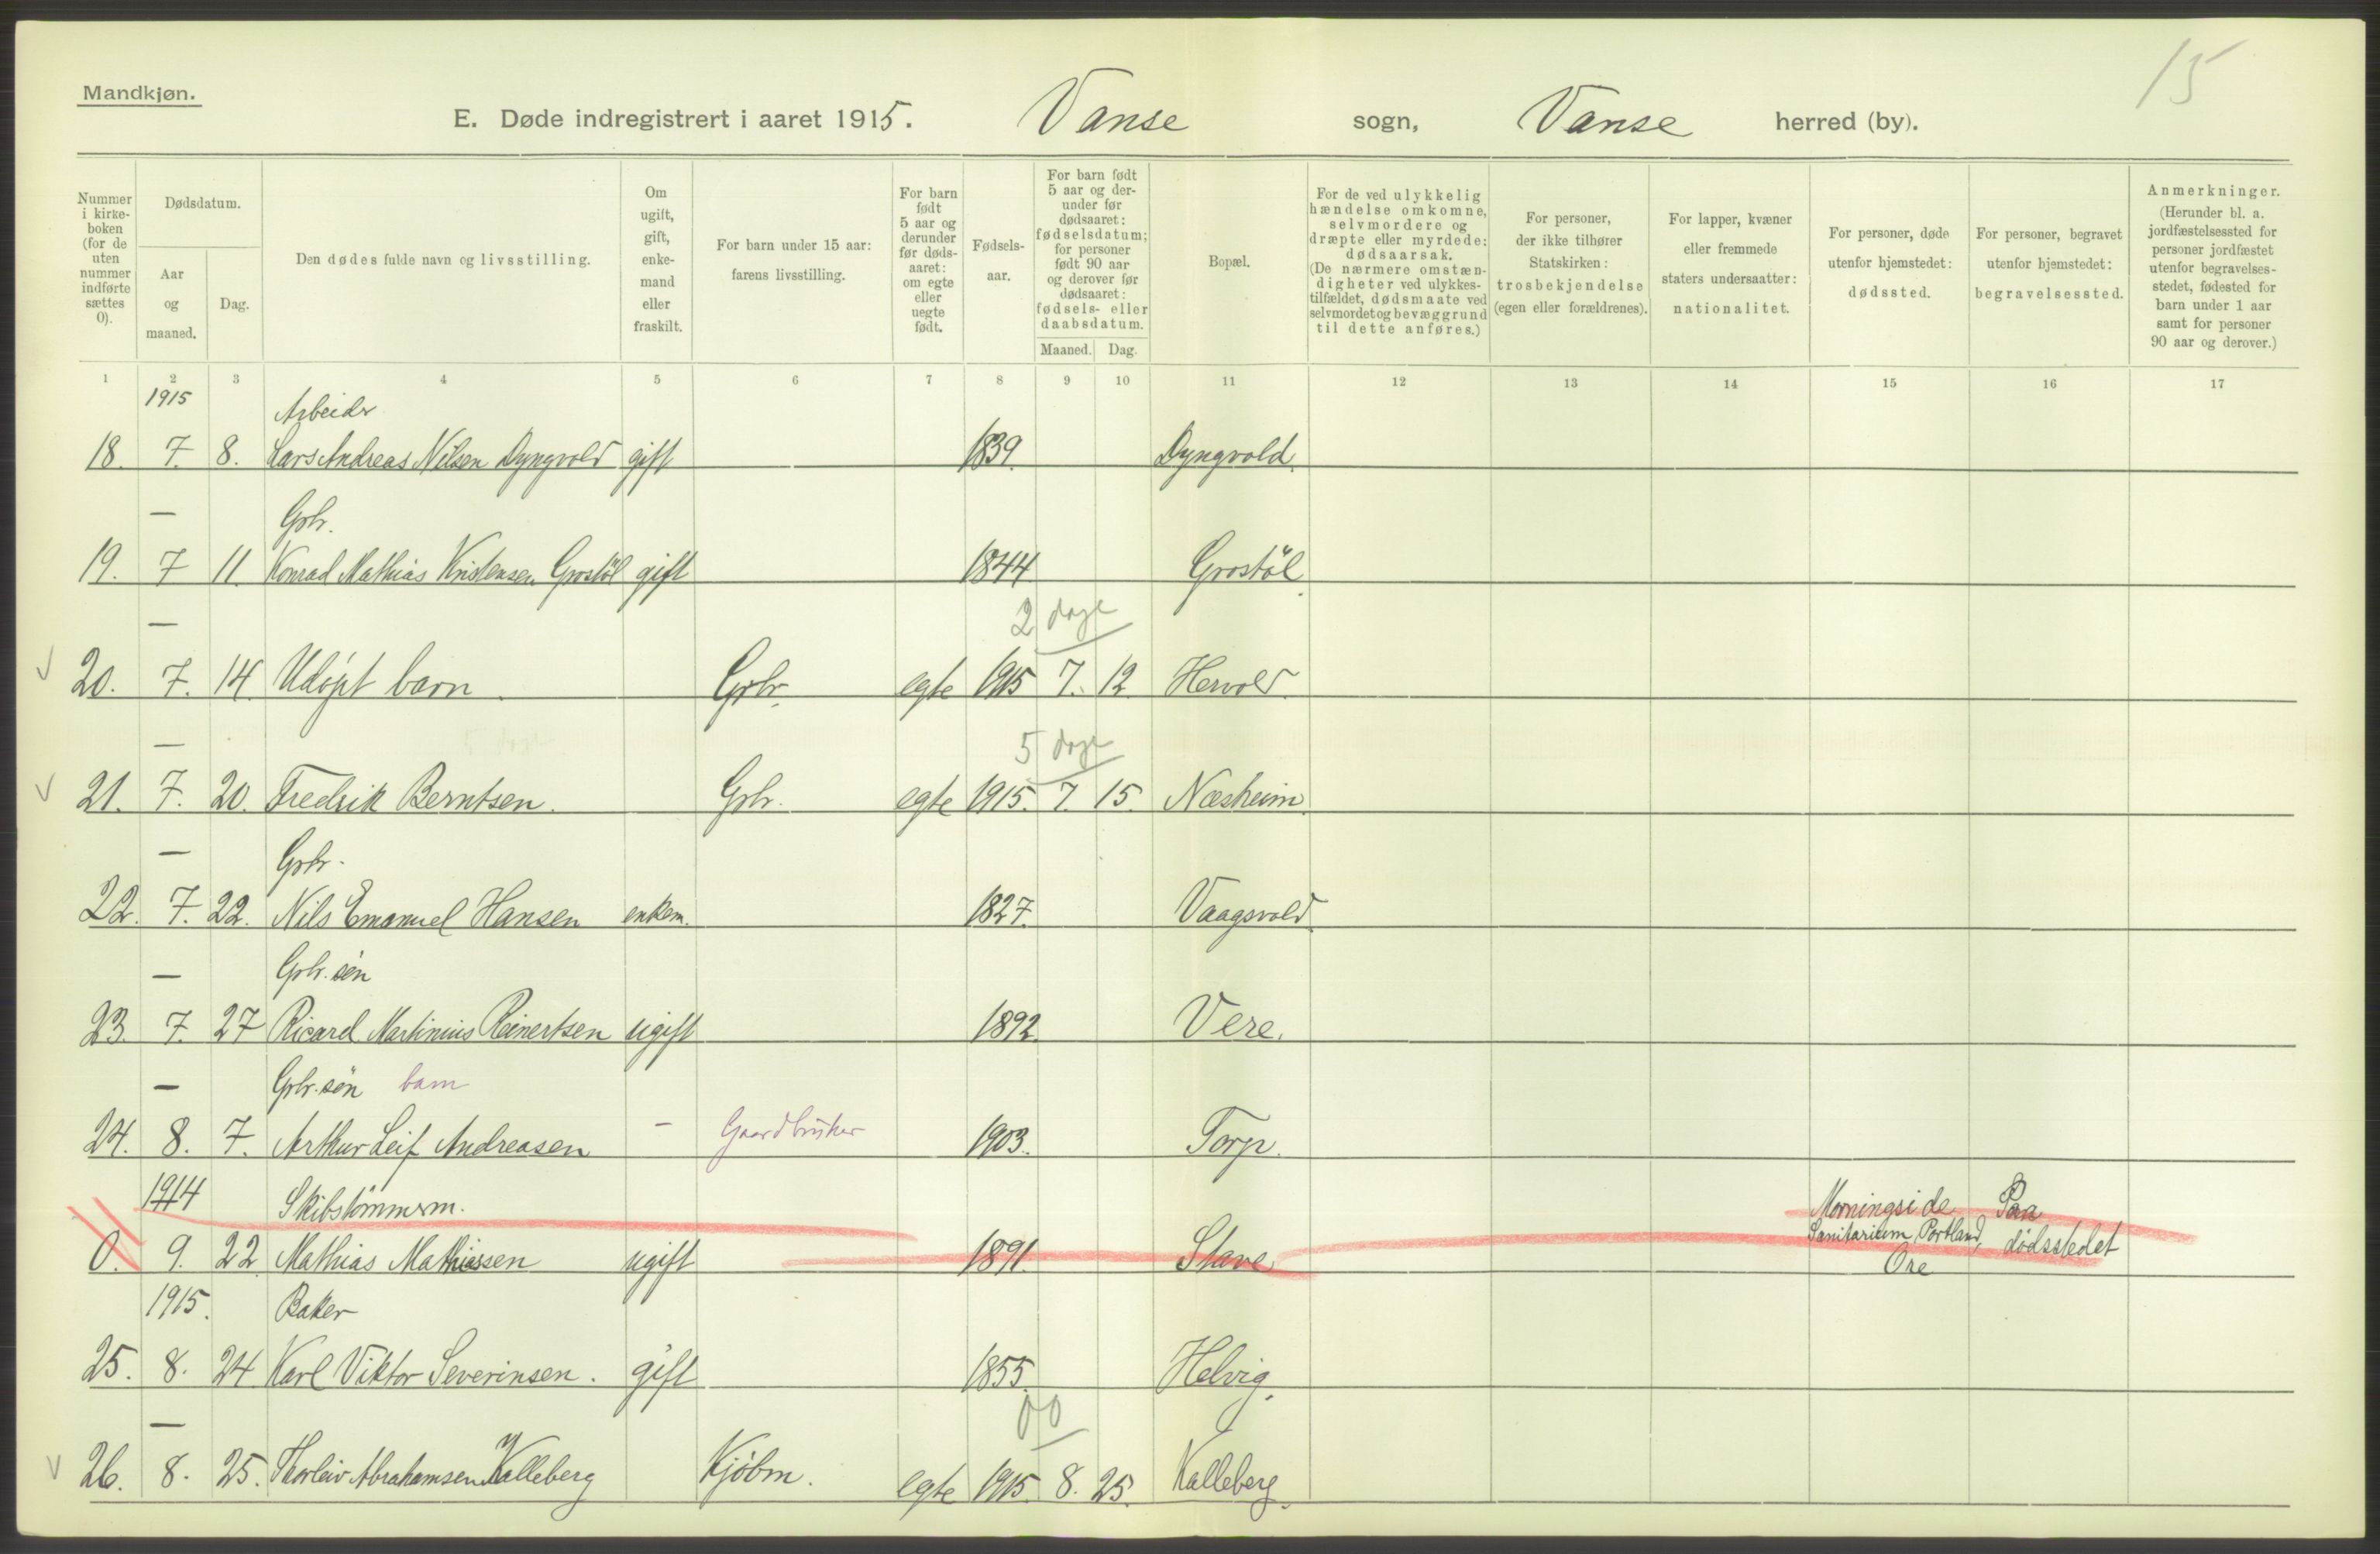 15
Mandkjøn.
E. Døde indregistrert i aaret 1915. Vanse sogn, Vanse herred (by).
Nummer i kirkeboken (for de uten nummer indførte sættes 0).
Dødsdatum.
Aar og maaned.
Dag.
Den dødes fulde navn og livsstilling.
Om ugift, gift, enkemand eller fraskilt.
For barn under 15 aar: farens livsstilling.
For barn født 5 aar og derunder før dødsaaret: om egte eller uegte født.
Fødselsaar.
For barn født 5 aar og derunder før dødsaaret: fødselsdatum; for personer født 90 aar og derover før dødsaaret: fødsels- eller daabsdatum.
Maaned. Dag.
Bopæl.
For de ved ulykkelig hændelse omkomne, selvmordere og dræpte eller myrdede: dødsaarsak. (De nærmere omstændigheter ved ulykkestilfældet, dødsmaate ved selvmordet og bevæggrund til dette anføres.)
For personer, der ikke tilhører Statskirken: trosbekjendelse (egen eller forældrenes).
For lapper, kvæner eller fremmede staters undersaatter: nationalitet.
For personer, døde utenfor hjemstedet: dødssted.
For personer, begravet utenfor hjemstedet: begravelsessted.
Anmerkninger. (Herunder bl. a. jordfæstelsessted for personer jordfæstet utenfor begravelsesstedet, fødested for barn under 1 aar samt for personer 90 aar og derover.)
1 2 3 4 5 6 7 8 9 10 11 12 13 14 15 16 17
1915 Arbeider
18. 7. 8. Lars Andreas Nilsen Dyngvold gift 1839. Dyngvold.
— Gbr.
19. 7 11. Konrad Mathias Kristensen Grostöl gift 1844 Grostöl.
— 2 dage
20. 7. 14. Udøpt barn. Gbr. egte 1915 7. 12. Hervold.
— 5 dage 5 dage
21. 7. 20. Fredrik Berntsen. Gbr. egte 1915. 7. 15. Næsheim.
— Gbr.
22. 7. 22. Nils Emanuel Hansen enkem. 1827. Vaagsvold.
— Gbr. søn
23. 7. 27 Ricard Martinius Reinertsen ugift 1892. Vere.
— Gbr. søn barn
24. 8. 7. Arthur Leif Andreasen - Gaardbruker 1903. Torp.
1914 Skibstømmerm. Morningside Paa
0. 9. 22. Mathias Mathiassen ugift 1891. Stave Sanitarium, Portland, dødsstedet
Ore
1915. Baker
25. 8. 24 Karl Viktor Severinsen. gift 1855. Helvig.
— 00
26. 8. 25. Thorleiv Abrahamsen Kalleberg Kjøbm. egte 1915. 8. 25. Kalleberg.